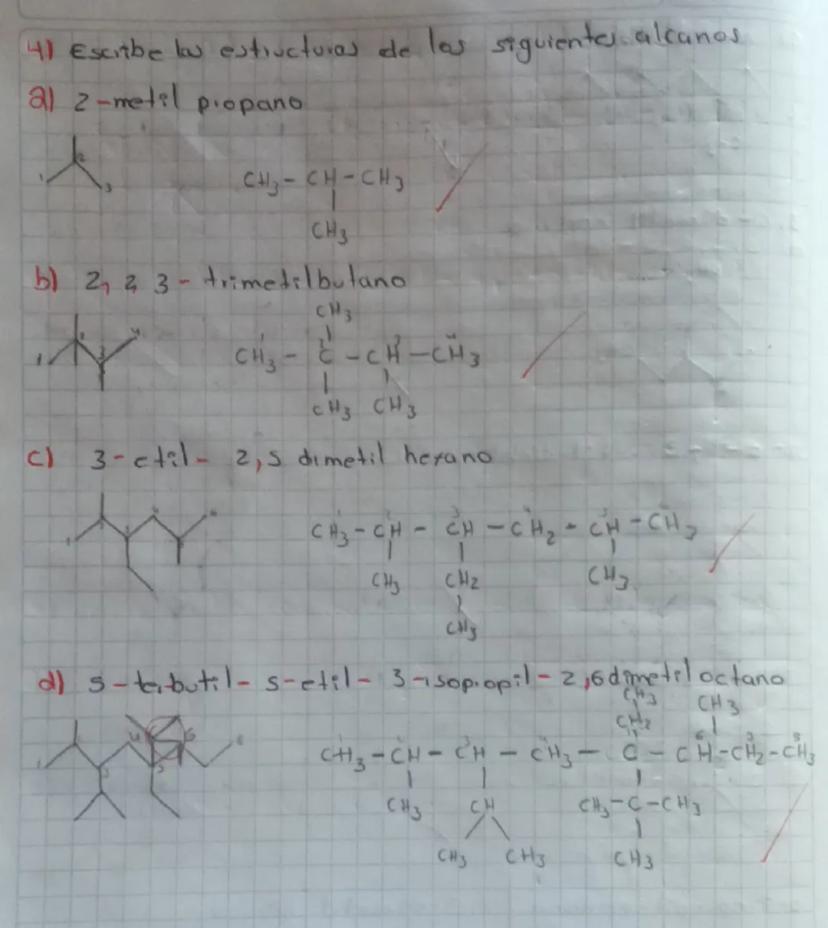 4) Escribe las estructuras de los siguientes alcanos
a) 2-metil propano
1 2 3
CH3 - CH - CH3
CH3
b) 2, 2 3 - trimetilbutano
CH3
1 2 3 4
CH3 - C - CH - CH3
CH3 CH3
c) 3-etil- 2,5 dimetil hexano
CH3 - CH - CH - CH2 - CH - CH3
CH3 CH2 CH3
CH3
d) 5-terbutil- 5-etil- 3-isopropil- 2,6 dimetil octano
CH3 CH3
CH2
CH3 - CH - CH - CH3 - C - CH - CH2 - CH3
CH3 CH CH3-C-CH3
CH3 CH3 CH3